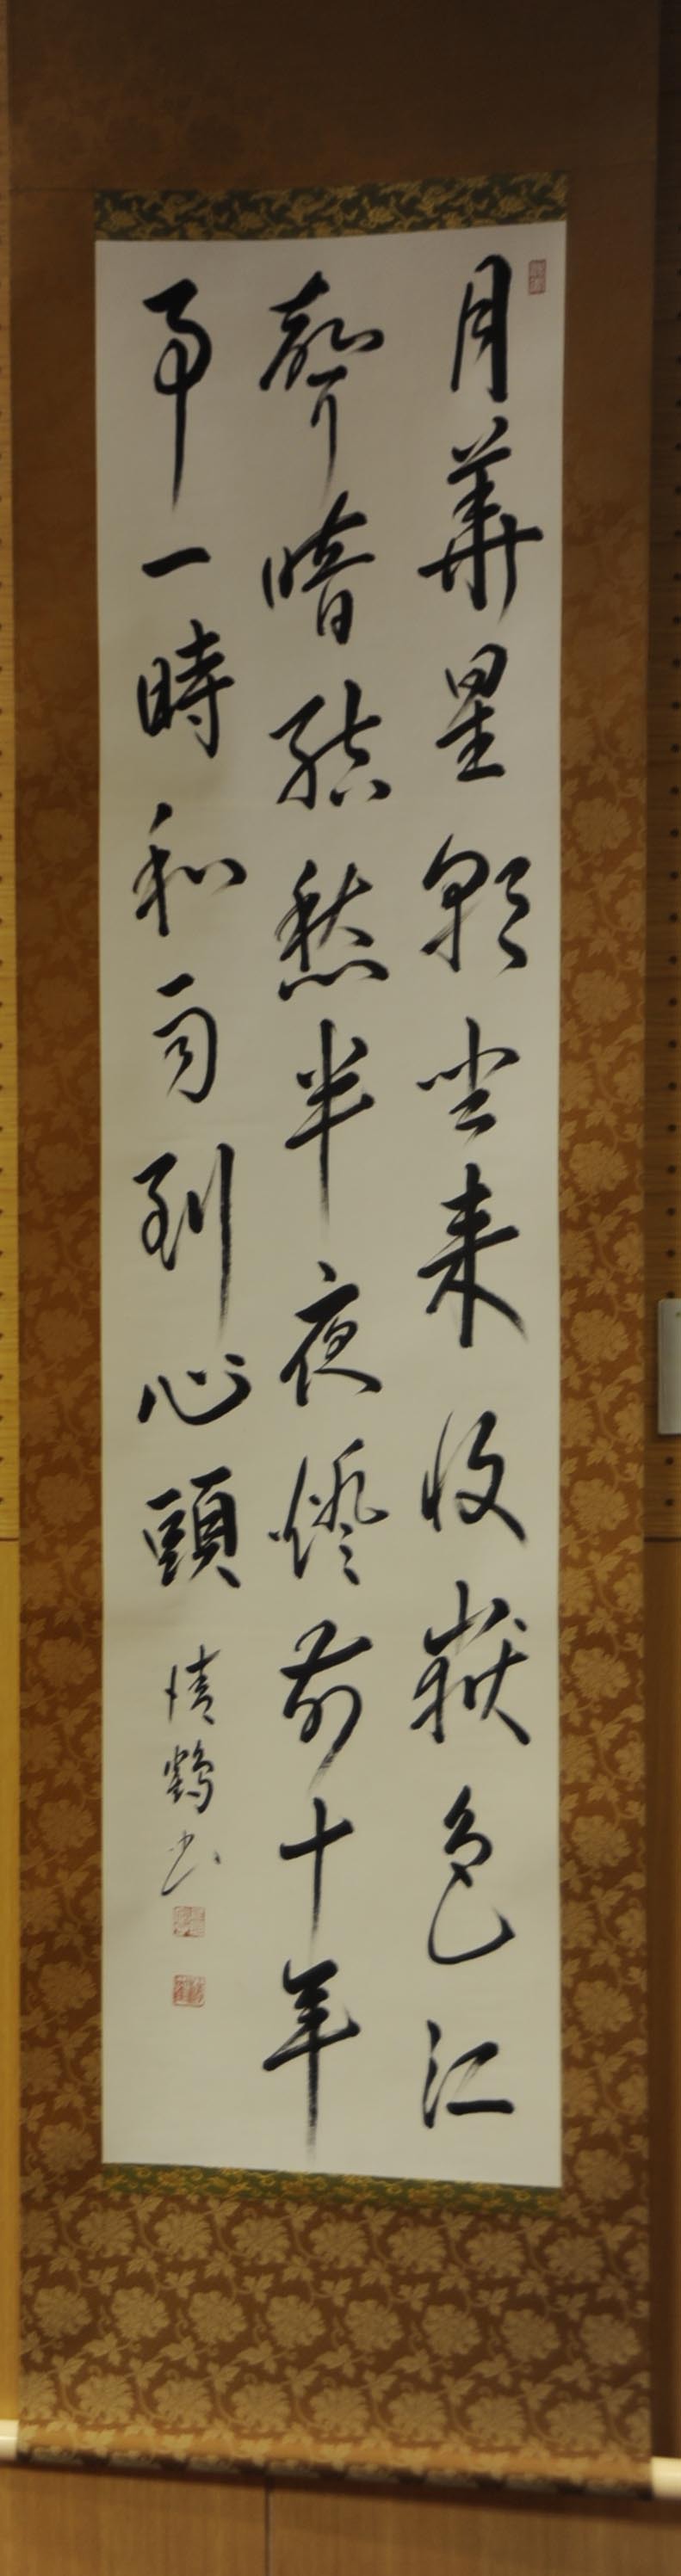 月華星彩坐来收嶽色江
聲暗結愁半夜燈前十年
事一時和雨到心頭
鶴書